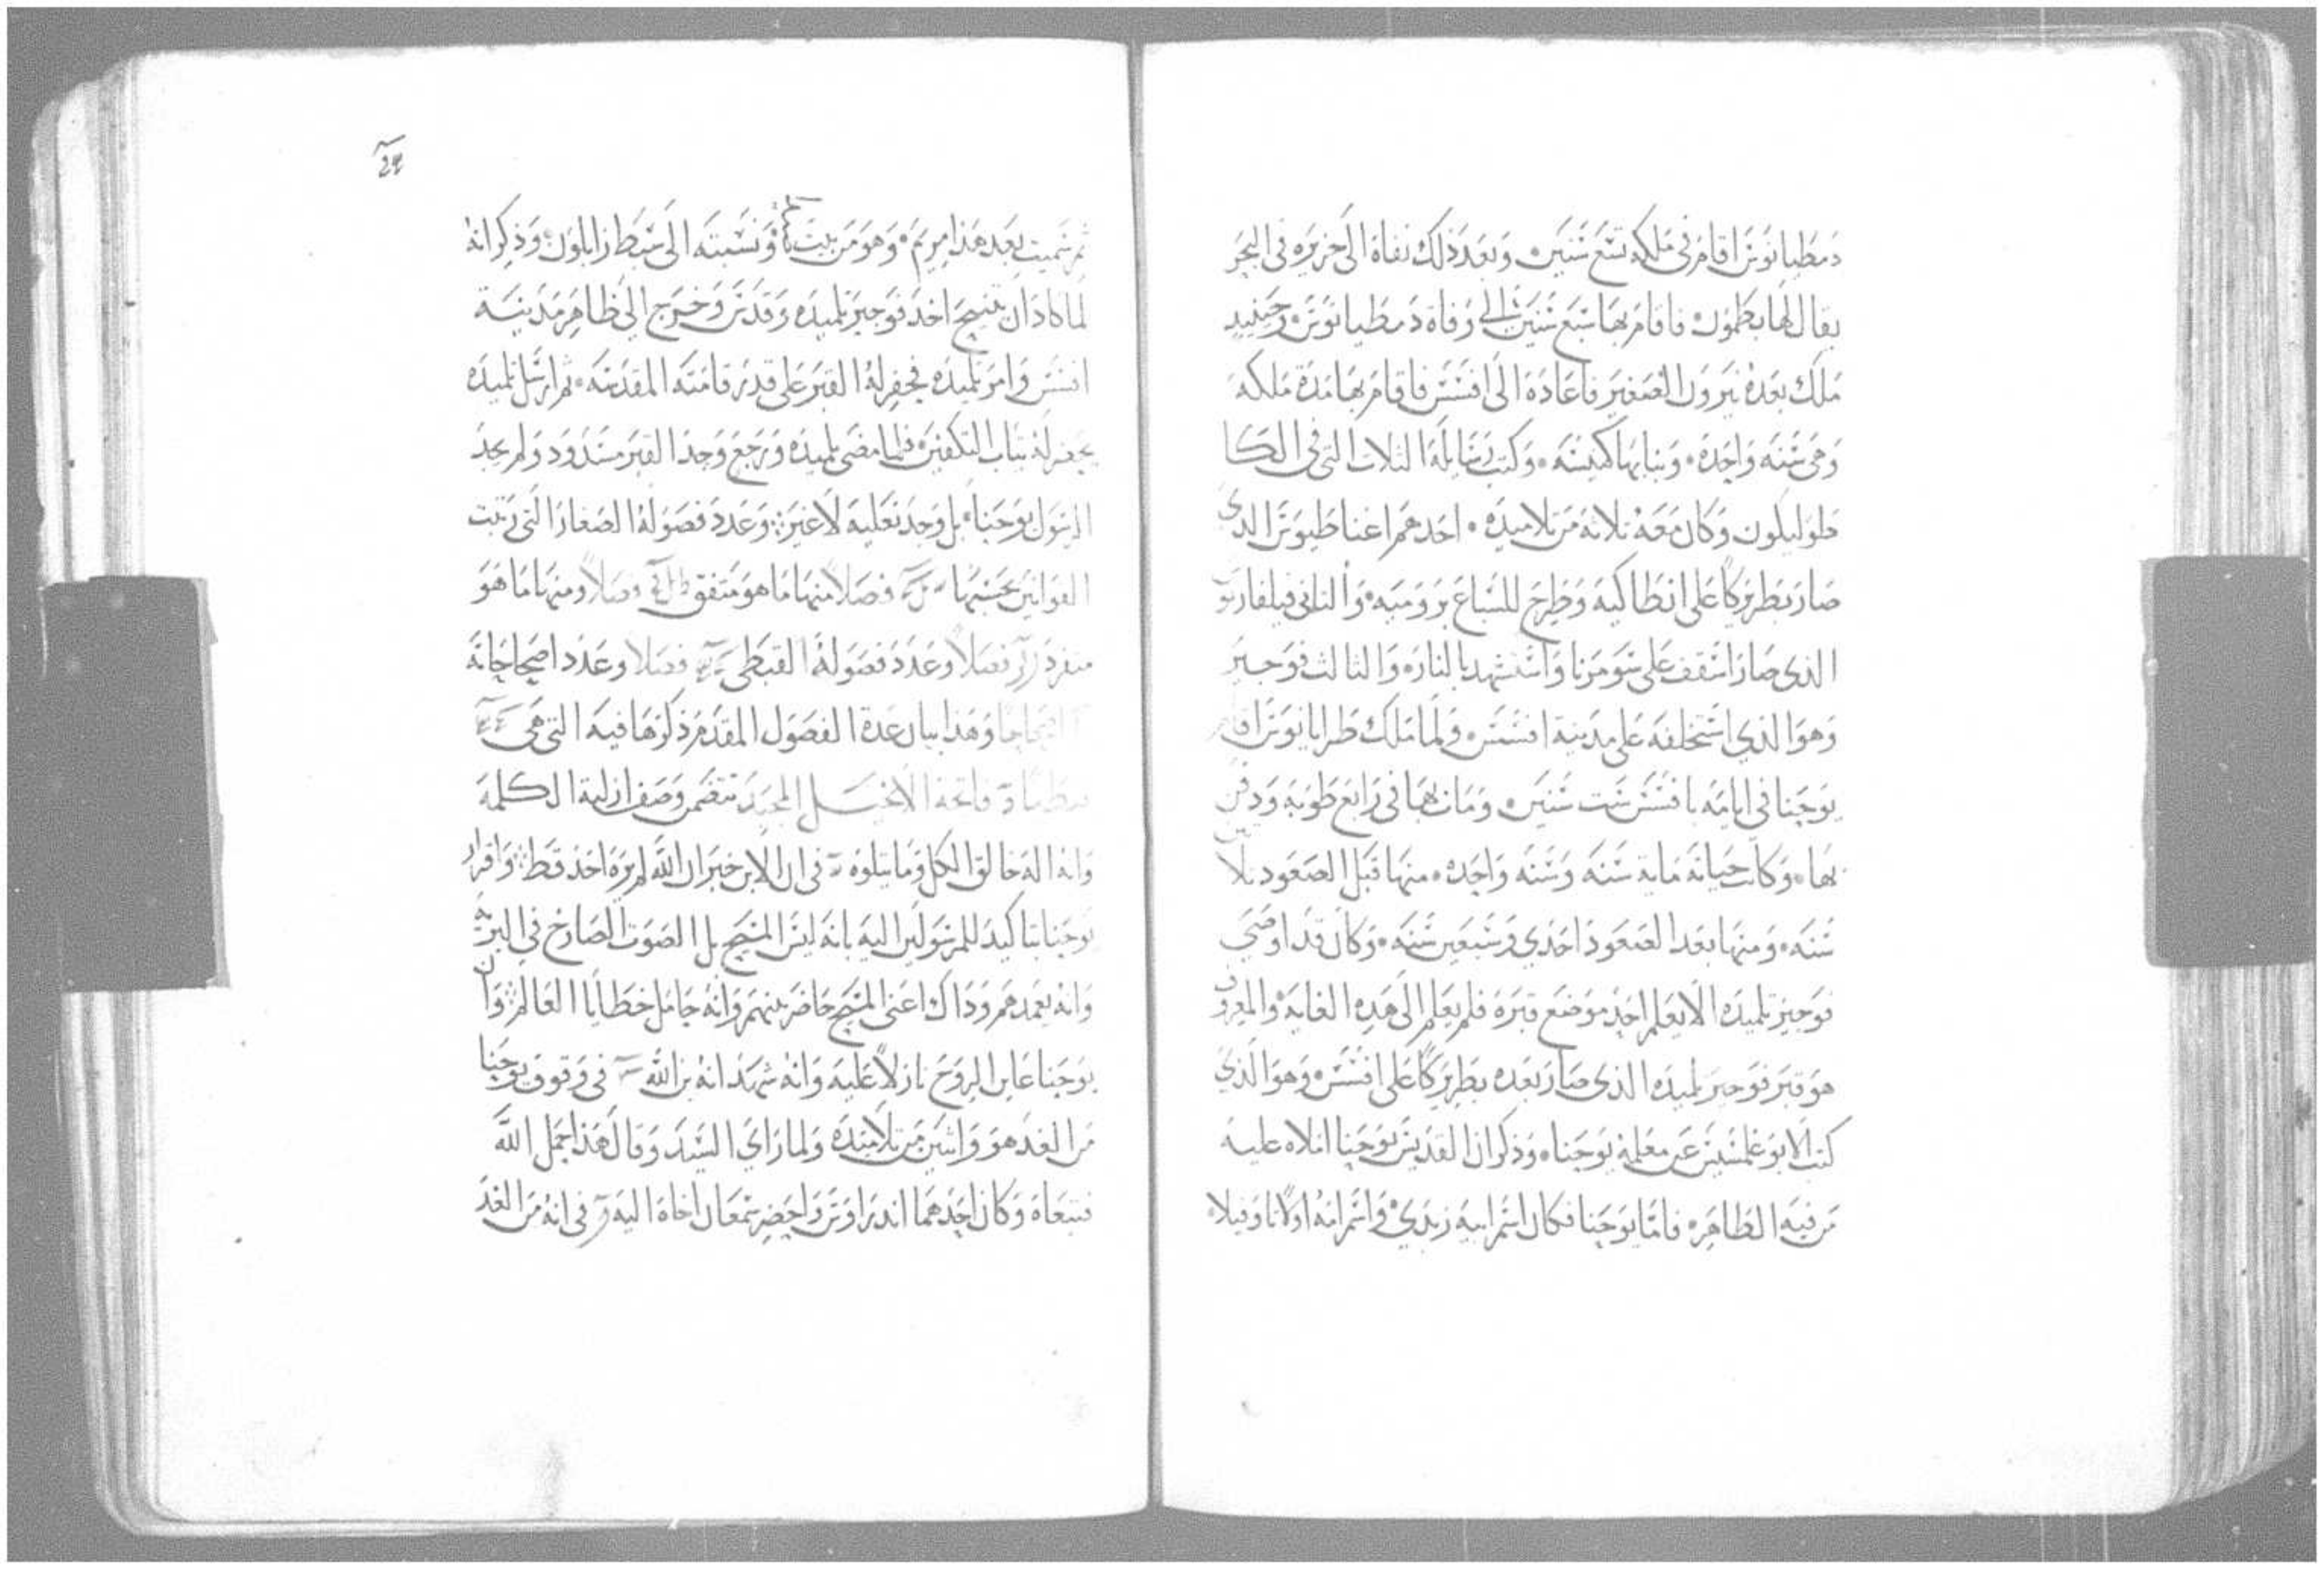 دمطيانوس اقام في ملكه تسع سنين وبعد ذلك نفاه الى جزيره في البحر
يقال لها بطمون فاقام بها سبع سنين الى وفاة دمطيانوس وحينيد
ملك بعده نيرون الصغير فاعاده الى افسس فاقام بها مدة ملكه
وهى سنه واحدة وبنا بها كنيسه وكتب رسايله الثلاث التي في الكا
ثوليكون وكان معه ثلاثه من تلاميده احدهم اغناطيوس الذي
صار بطريركا على انطاكيه وطرح للسباع برومية والثاني
الذي صار اسقف على سومرنا واستشهد بالنار والثالث فوجير
وهو الذي استخلفه على مدينة افسس ولما ملك طرايانوس اقام
يوحنا في ايامه بافسس ست سنين ومات بها في رابع طوبه ودفن
بها وكانت حياته مايه سنه وسنه واحده منها قبل الصعود
سنه ومنها بعد الصعود احدي وسبعين سنه وكان قد اوصي
فوجير تلميده الا يعلم احد موضع قبره فلم يعلم الى هده الغايه والمعروف
هو قبر فوجير تلميده الذي صار بعده بطريركا على افسس وهو الذي
كتب الابوغلمسيس عن معلمه يوحنا وذكر ان القديس يوحنا املاه عليه
من فيه الطاهر فاما يوحنا فكان اسم ابيه زبدي واسم امه اولا ثاوفيلا
24
ثم سميت بعد هذا مريم وهو من بيت ونسبته الى سبط زابلون وذكر انه
لما كاد ان يتنيح اخد فوجير تلميده وقدس وخرج الى ظاهر مدينة
افسس وامر تلميده فحفر له القبر على قدر قامته المقدسه ثم ارسل تلميده
يحضر له ثياب التكفين فلما مضى تلميده ورجع وجد القبر مسدود ولم يجد
الرسول يوحنا بل وجد نعليه لا غير وعدد فصوله الصغار التي رتبت
القوانين بحسبها فصلا منها ما هو متفق فصلا ومنها ما هو
منفرد فصلا وعدد فصوله القبطي فصلا وعدد اصحاحاته
اصحاحا وهذا بيان عدة الفصول المقدم ذكرها فيه التي هي
فاتحة الانجيل المجيد تتضمن وصف ازلية الكلمه
وانه اله خالق الكل وما يتلوه في ان الابن خبر ان الله لم يره احد قط واقرار
يوحنا بتاكيد للمرسولين اليه بانه ليس المسيح بل الصوت الصارخ في البريه
وانه يعمدهم وذاك اعني المسيح حاضر بينهم وانه حامل خطايا العالم وان
يوحنا عاين الروح نازلا عليه وانه شهد انه بن الله في وقوف يوحنا
من الغد هو واثنين من تلاميده ولما راي السيد وقال هذا حمل الله
فتبعاه وكان احدهما اندراوس واحضر سمعان اخاه اليه في انه من الغد